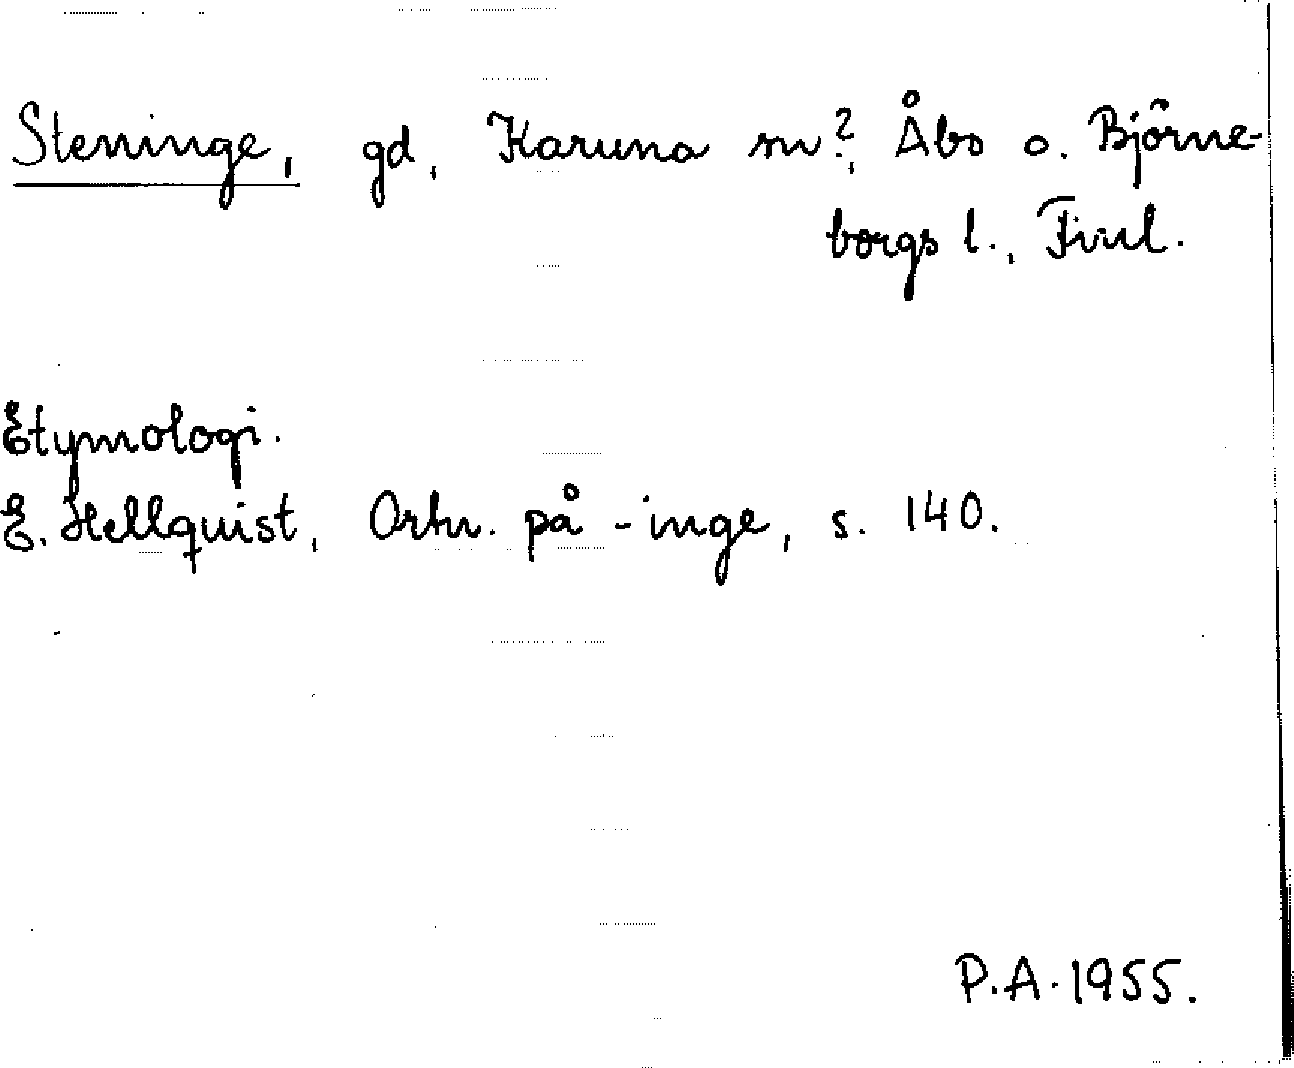 Steninge, gd, Karuna sn?, Åbo o. Björne-
borgs l., Finl.
Etymologi.
E. Hellquist, Ortn. på -inge, s. 140.
P.A. 1955.